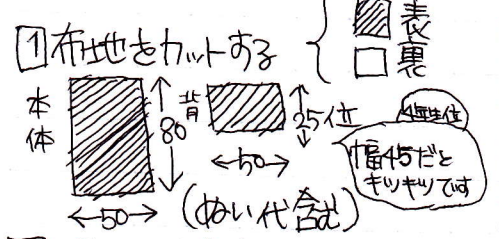 1 布地をカットする
表
裏
本体
80
50
背
25位
50
(ぬい代含む)
4年生位
幅45だと
キツキツです